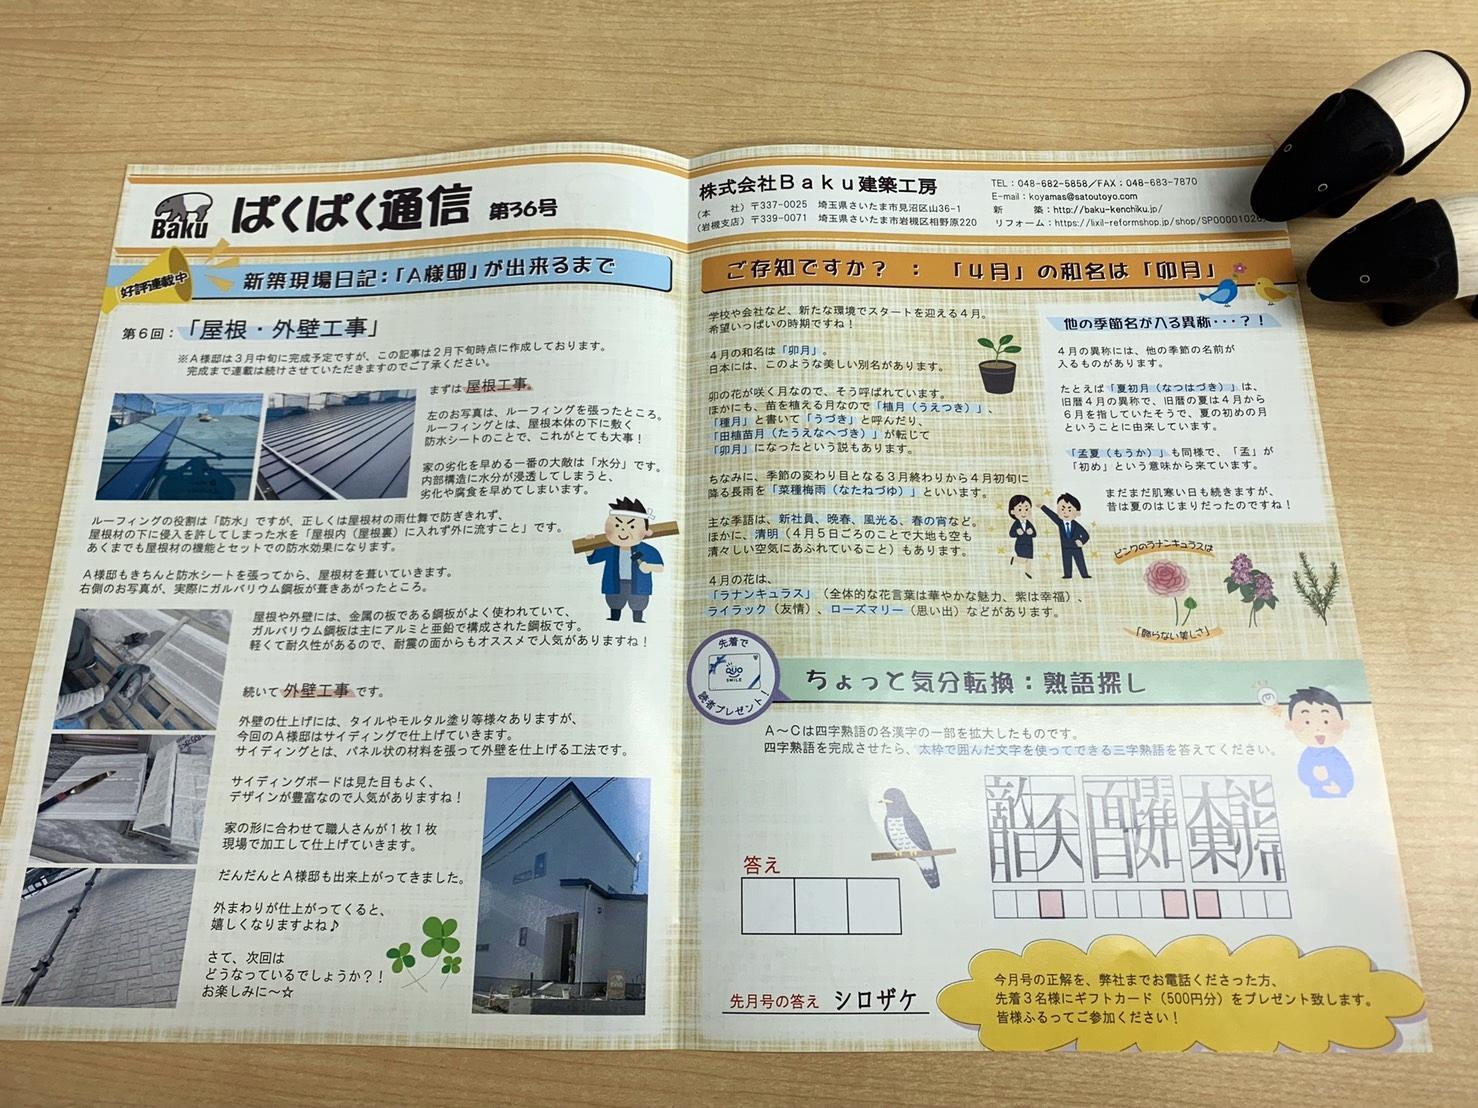 Baku
ぱくぱく通信 第36号
株式会社Baku建築工房
(本　　社) 〒337-0025 埼玉県さいたま市見沼区山36-1
(岩槻支店) 〒339-0071 埼玉県さいたま市岩槻区相野原220
TEL：048-682-5858／FAX：048-683-7870
E-mail：koyamas@satoutoyo.com
新　　築：http://baku-kenchiku.jp/
リフォーム：https://lixil-reformshop.jp/shop/SP00001026
好評連載中
新築現場日記：「A様邸」が出来るまで
第6回：「屋根・外壁工事」
※A様邸は3月中旬に完成予定ですが、この記事は2月下旬時点に作成しております。
完成まで連載は続けさせていただきますのでご了承ください。
まずは屋根工事。
左のお写真は、ルーフィングを張ったところ。
ルーフィングとは、屋根本体の下に敷く
防水シートのことで、これがとても大事！
家の劣化を早める一番の大敵は「水分」です。
内部構造に水分が浸透してしまうと、
劣化や腐食を早めてしまいます。
ルーフィングの役割は「防水」ですが、正しくは屋根材の雨仕舞で防ぎきれず、
屋根材の下に侵入を許してしまった水を「屋根内（屋根裏）に入れず外に流すこと」です。
あくまでも屋根材の機能とセットでの防水効果になります。
A様邸もきちんと防水シートを張ってから、屋根材を葺いていきます。
右側のお写真が、実際にガルバリウム鋼板が葺きあがったところ。
屋根や外壁には、金属の板である鋼板がよく使われていて、
ガルバリウム鋼板は主にアルミと亜鉛で構成された鋼板です。
軽くて耐久性があるので、耐震の面からもオススメで人気がありますね！
続いて外壁工事です。
外壁の仕上げには、タイルやモルタル塗り等様々ありますが、
今回のA様邸はサイディングで仕上げていきます。
サイディングとは、パネル状の材料を張って外壁を仕上げる工法です。
サイディングボードは見た目もよく、
デザインが豊富なので人気がありますね！
家の形に合わせて職人さんが1枚1枚
現場で加工して仕上げていきます。
だんだんとA様邸も出来上がってきました。
外まわりが仕上がってくると、
嬉しくなりますよね♪
さて、次回は
どうなっているでしょうか？！
お楽しみに～☆
ご存知ですか？ ： 「4月」の和名は「卯月」
学校や会社など、新たな環境でスタートを迎える4月。
希望いっぱいの時期ですね！
4月の和名は「卯月」。
日本には、このような美しい別名があります。
卯の花が咲く月なので、そう呼ばれています。
ほかにも、苗を植える月なので「植月（うえつき）」、
「種月」と書いて「うづき」と呼んだり、
「田植苗月（たうえなへづき）」が転じて
「卯月」になったという説もあります。
ちなみに、季節の変わり目となる3月終わりから4月初旬に
降る長雨を「菜種梅雨（なたねづゆ）」といいます。
主な季語は、新社員、晩春、風光る、春の宵など。
ほかに、清明（4月5日ごろのことで大地も空も
清々しい空気にあふれていること）もあります。
4月の花は、
「ラナンキュラス」（全体的な花言葉は華やかな魅力、紫は幸福）、
ライラック（友情）、ローズマリー（思い出）などがあります。
他の季節名が入る異称・・・？！
4月の異称には、他の季節の名前が
入るものがあります。
たとえば「夏初月（なつはづき）」は、
旧暦4月の異称で、旧暦の夏は4月から
6月を指していたそうで、夏の初めの月
ということに由来しています。
「孟夏（もうか）」も同様で、「孟」が
「初め」という意味から来ています。
まだまだ肌寒い日も続きますが、
昔は夏のはじまりだったのですね！
ピンクのラナンキュラスは
「飾らない美しさ」
先着で
QUO
SMILE
読者プレゼント！
ちょっと気分転換：熟語探し
A～Cは四字熟語の各漢字の一部を拡大したものです。
四字熟語を完成させたら、太枠で囲んだ文字を使ってできる三字熟語を答えてください。
答え
先月号の答え シロザケ
今月号の正解を、弊社までお電話くださった方、
先着3名様にギフトカード（500円分）をプレゼント致します。
皆様ふるってご参加ください！